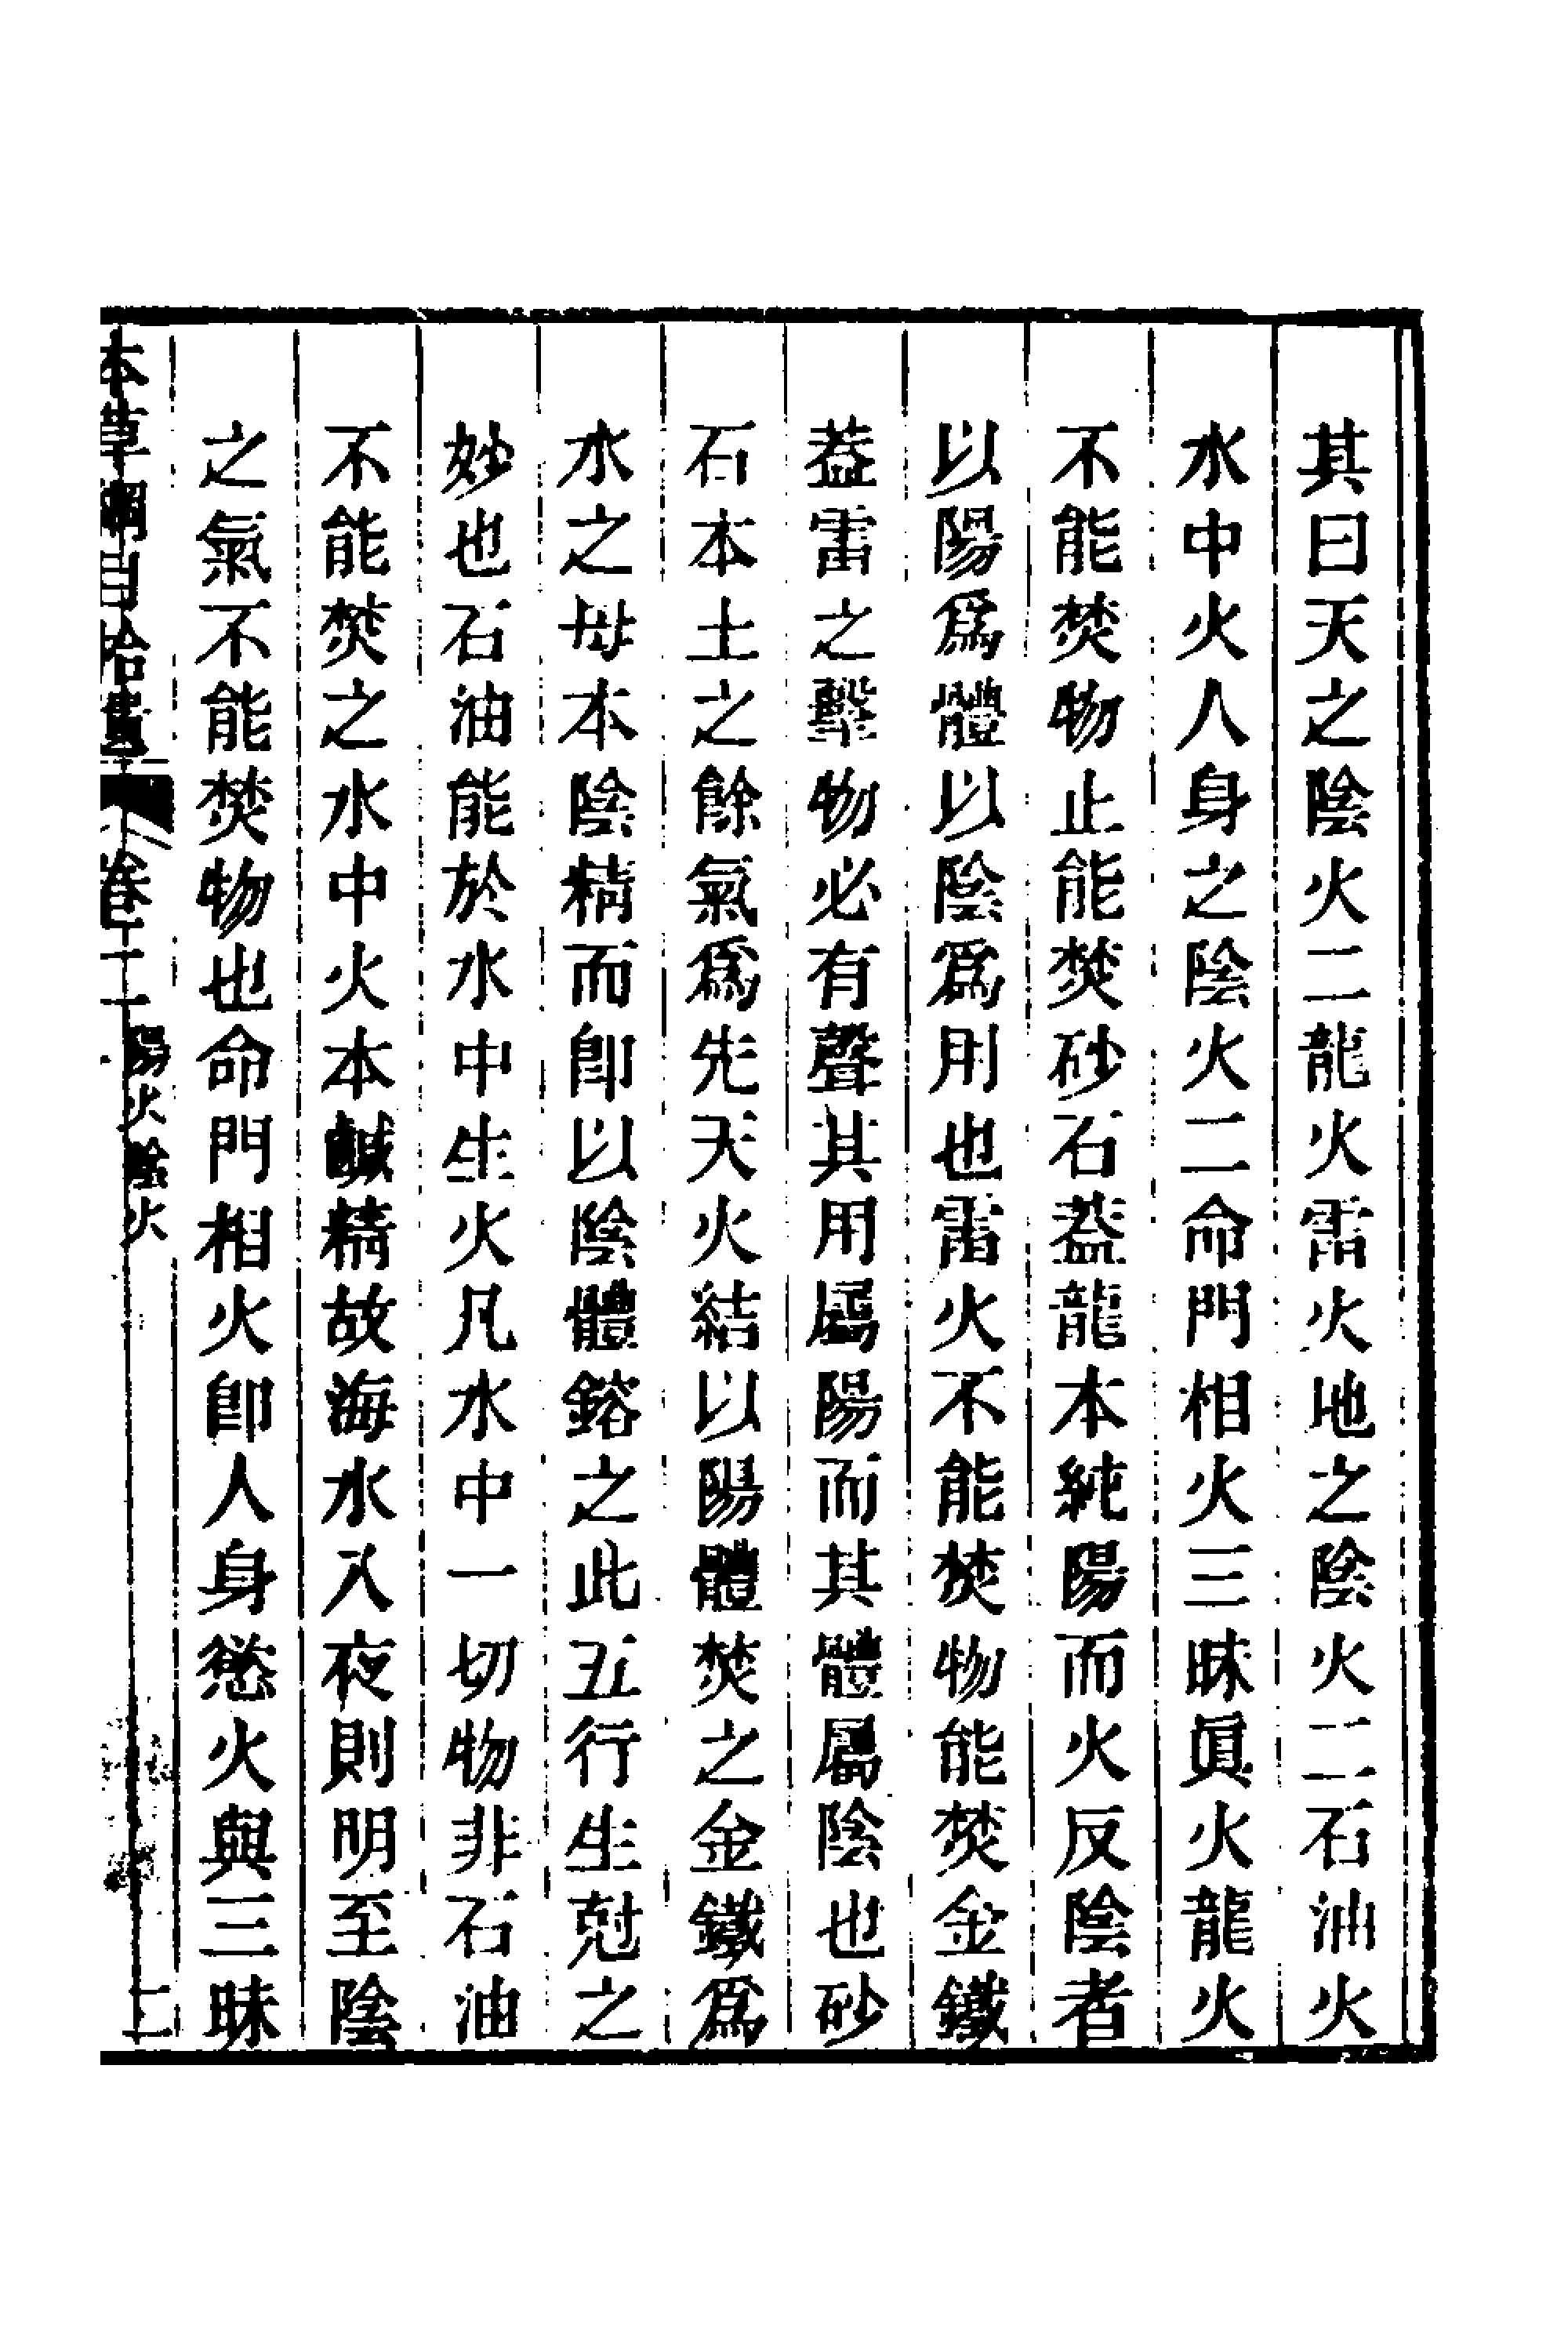 其曰天之陰火二龍火雷火地之陰火二石油火
水中火人身之陰火二命門相火三昧眞火龍火
不能焚物止能焚砂石葢龍本純陽而火反陰者
以陽爲體以陰爲用也雷火不能焚物能焚金鐵
葢雷之擊物必有聲其用屬陽而其體屬陰也砂
石本土之餘氣爲先天火結以陽體焚之金鐵爲
水之母本陰精而卽以陰體鎔之此五行生尅之
妙也石油能於水中生火凡水中一切物非石油
不能焚之水中火本鹹精故海水入夜則明至陰
之氣不能焚物也命門相火卽人身慾火與三昧
本草綱目拾遺 卷二 陽火陰火 二